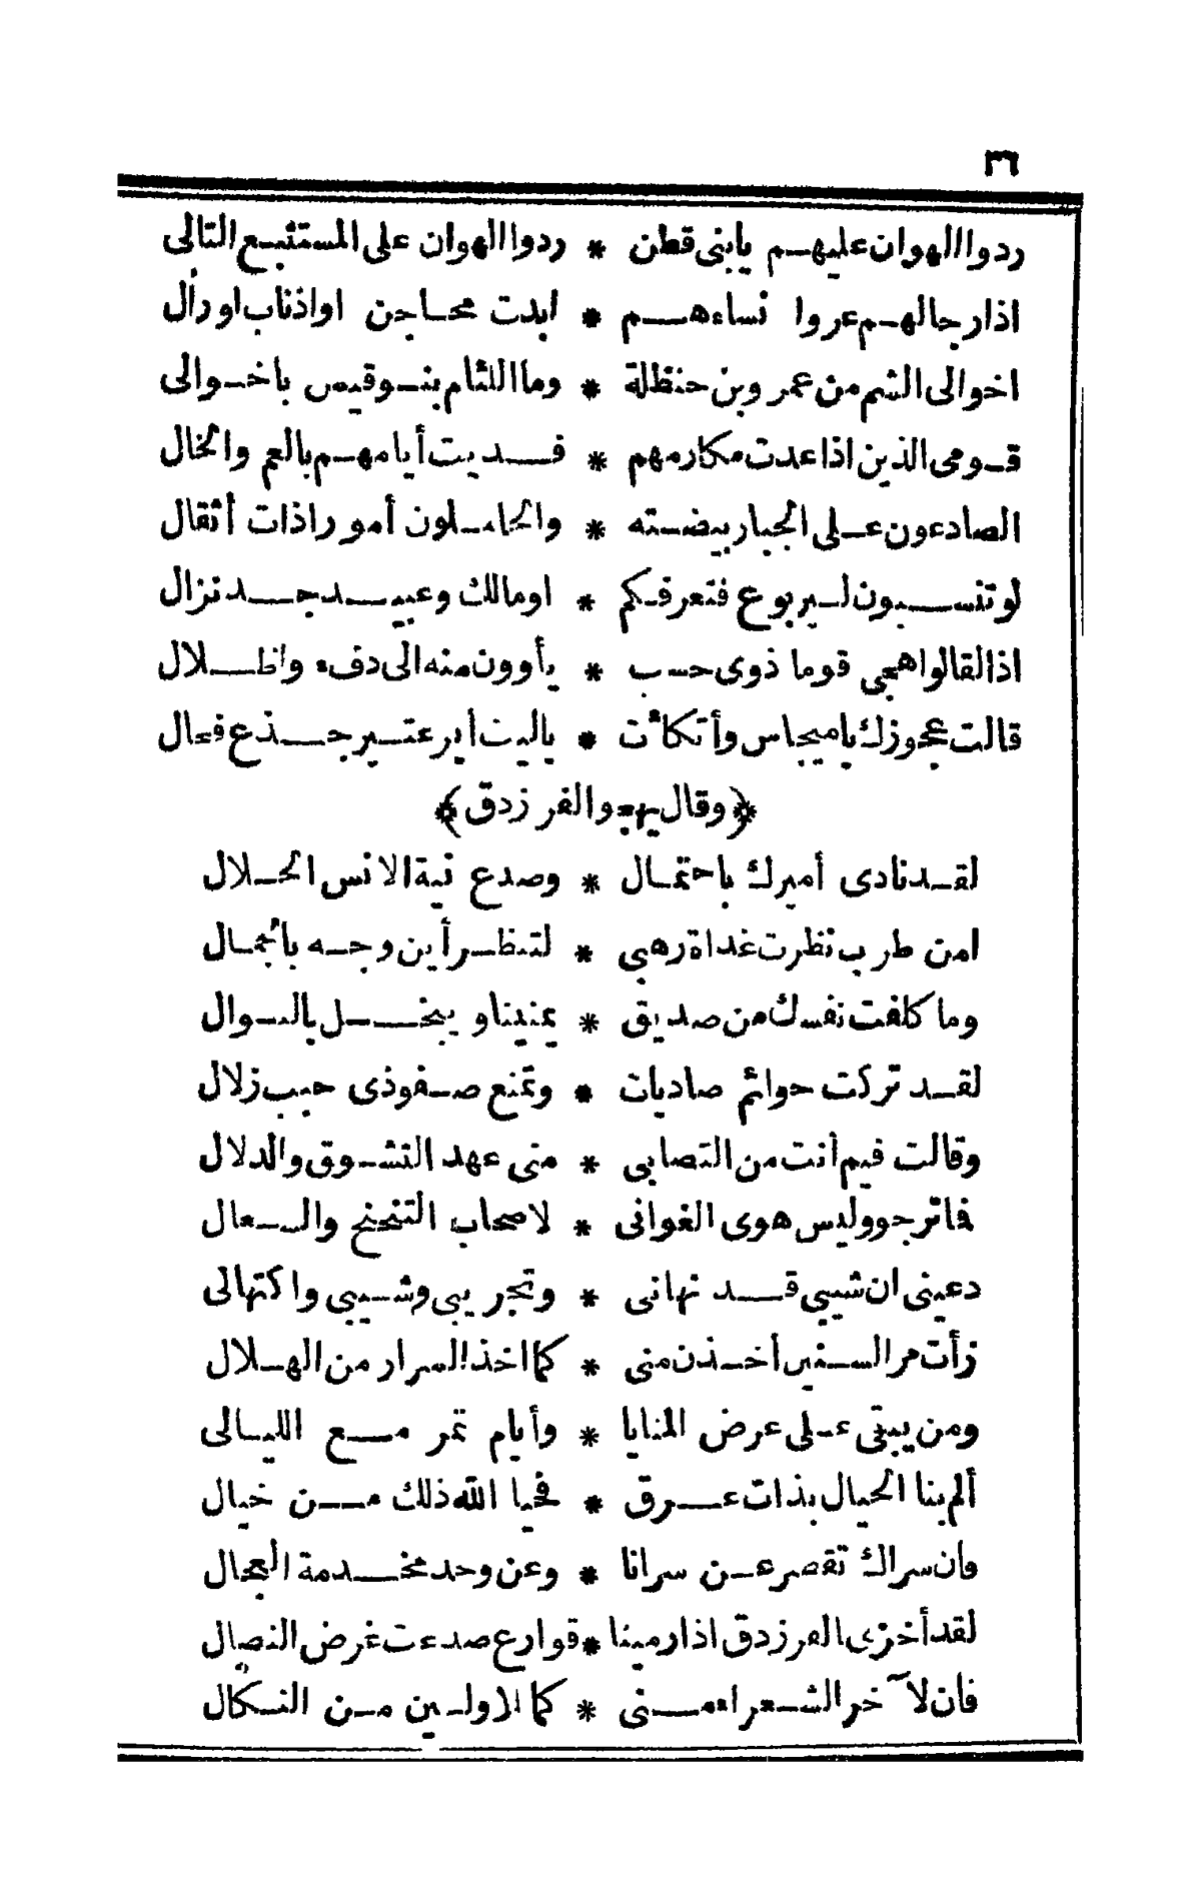 ٣٦
ردوا الهوان عليهم يابنى قطن * ردوا الهوان على المستثبع التالى
اذا رجالهم عروا نساءهم * ابدت محاجن او اذناب اورأل
اخوالى الشم من عمرو بن حنظلة * وما اللئام بنو قيس باخوالى
قومى الذين اذا عدت مكارمهم * فديت أيامهم بالعم والخال
الصادعون على الجبار بيضته * والحاملون أمورا ذات أثقال
لو تنسبون ليربوع فتعرفكم * اومالك وعبيد جد نزال
اذا لقالوا هجى قوما ذوى حسب * يأوون منه الى دفء واظلال
قالت عجوزك ياميجاس وأتكأت * ياليت أير عتير جذع فحال
﴿وقال يهجو الفرزدق﴾
لقد نادى أميرك باحتمال * وصدع نية الانس الحلال
امن طرب نظرت غداة رهبى * لتنظر أين وجه بالجمال
وما كلفت نفسك من صديق * يمنينا ويبخل بالسوال
لقد تركت حوائم صاديات * وتمنع صفو ذى حبب زلال
وقالت فيم أنت من التصابى * متى عهد التشوق والدلال
فاترجو وليس هوى الغوانى * لاصحاب التنحنح والسعال
دعينى ان شيبى قد نهانى * وتجريبى وشيبى واكتهالى
رأت مر السنين أخذن منى * كما اخذ السرار من الهلال
ومن يبقى على عرض المنايا * وأيام تمر مع الليالى
ألم بنا الخيال بذات عرق * فحيا الله ذلك من خيال
وان سراك تقصر عن سرانا * وعن وحد مخدمة العجال
لقد أخزى الفرزدق اذا رمينا * قوارع صدعت غرض النصال
فان لآخر الشعراء منى * كما الاولين من النكال